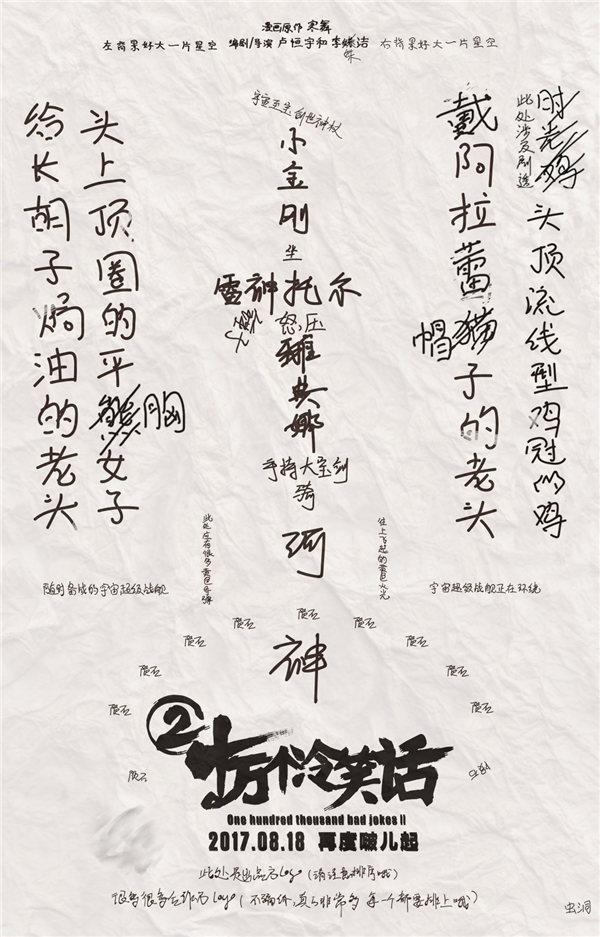 漫画原作 寒舞
左背景好大一片星空
编剧/导演 卢恒宇和李姝洁
右背景好大一片星空
给长胡子焗油的老头
头上顶圈的平胸女子
宇宙至尊创世神权
小金刚
坐
雷神托尔
怒压
雅典娜
手持大宝剑
骑
河
神
戴阿拉蕾猫帽子的老头
此处涉及剧透
时光鸡
头顶流线型鸡冠的鸡
此处应有很多黄色导弹
往上飞起的黄色火光
随时备战的宇宙超级战舰
宇宙超级战舰正在环绕
陨石
陨石
陨石
陨石
陨石
陨石
陨石
陨石
陨石
陨石
陨石
② 十万个冷笑话
One hundred thousand bad jokes II
2017.08.18 再度啵儿起
此处是出品方logo(请注意排序哦)
很多很多合作方logo(不骗你,真的非常多 每一个都要排上哦)
虫洞